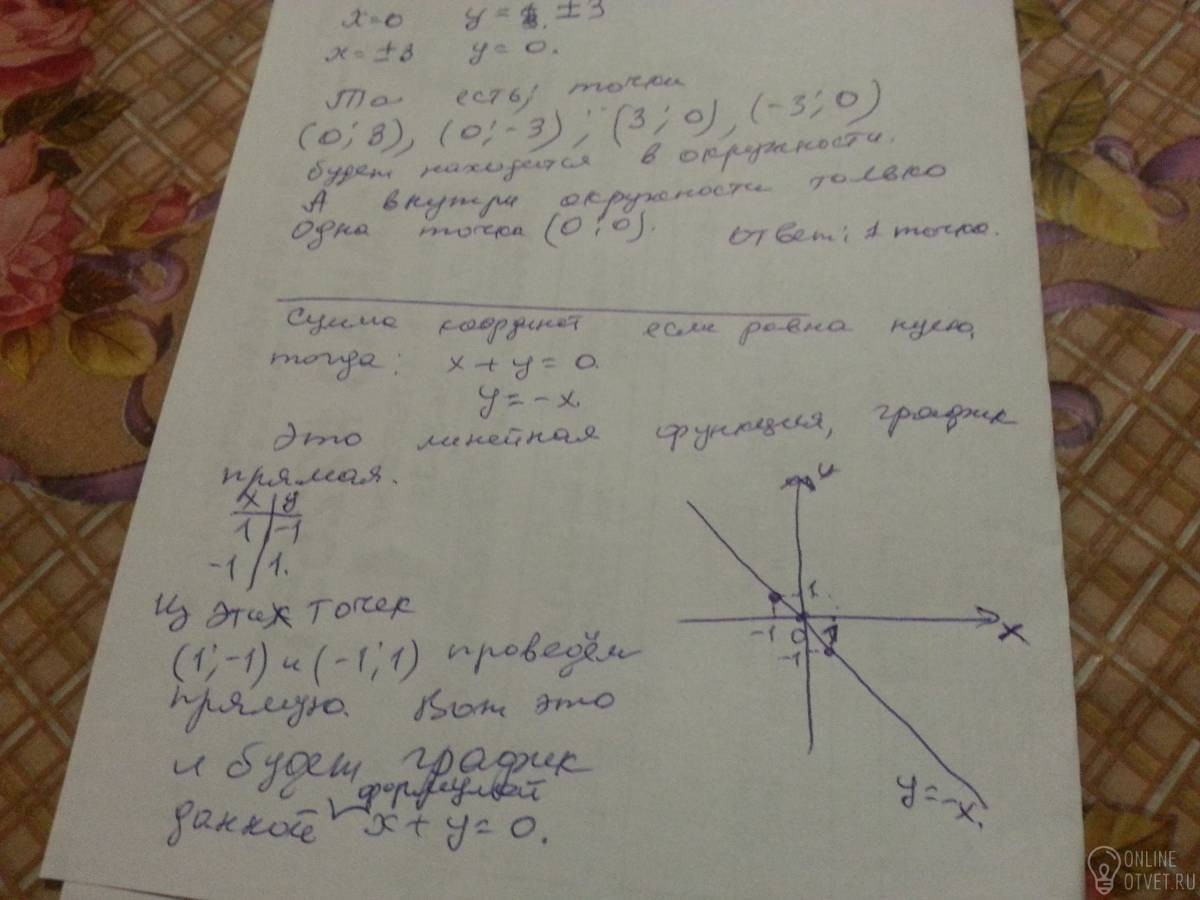 x=0 y= ±3
x=±3 y=0.
То есть; точки
(0;3), (0;-3); (3;0), (-3;0)
будет находится в окружности.
А внутри окружности только
одна точка (0;0). Ответ: 1 точка.
Сумма координат если равна нулю,
тогда: x+y=0.
y=-x
Это линейная функция, график
прямая.
x y
1 -1
-1 1.
Из этих точек
(1;-1) и (-1;1) проведём
прямую. Вот это
и будет график
формулой
данной x+y=0.
y
1
-1 0 1
-1
x
y=-x.
ONLINE
OTVET.RU